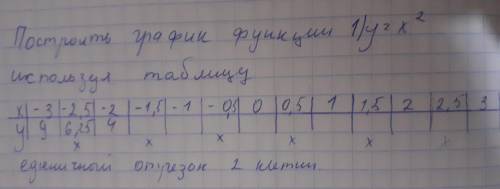 Построить график функции 1) y = x²
используя таблицу
x | -3 | -2,5 | -2 | -1,5 | -1 | -0,5 | 0 | 0,5 | 1 | 1,5 | 2 | 2,5 | 3
y | 9 | 6,25 | 4
x x x x x x
единичный отрезок 2 клетки